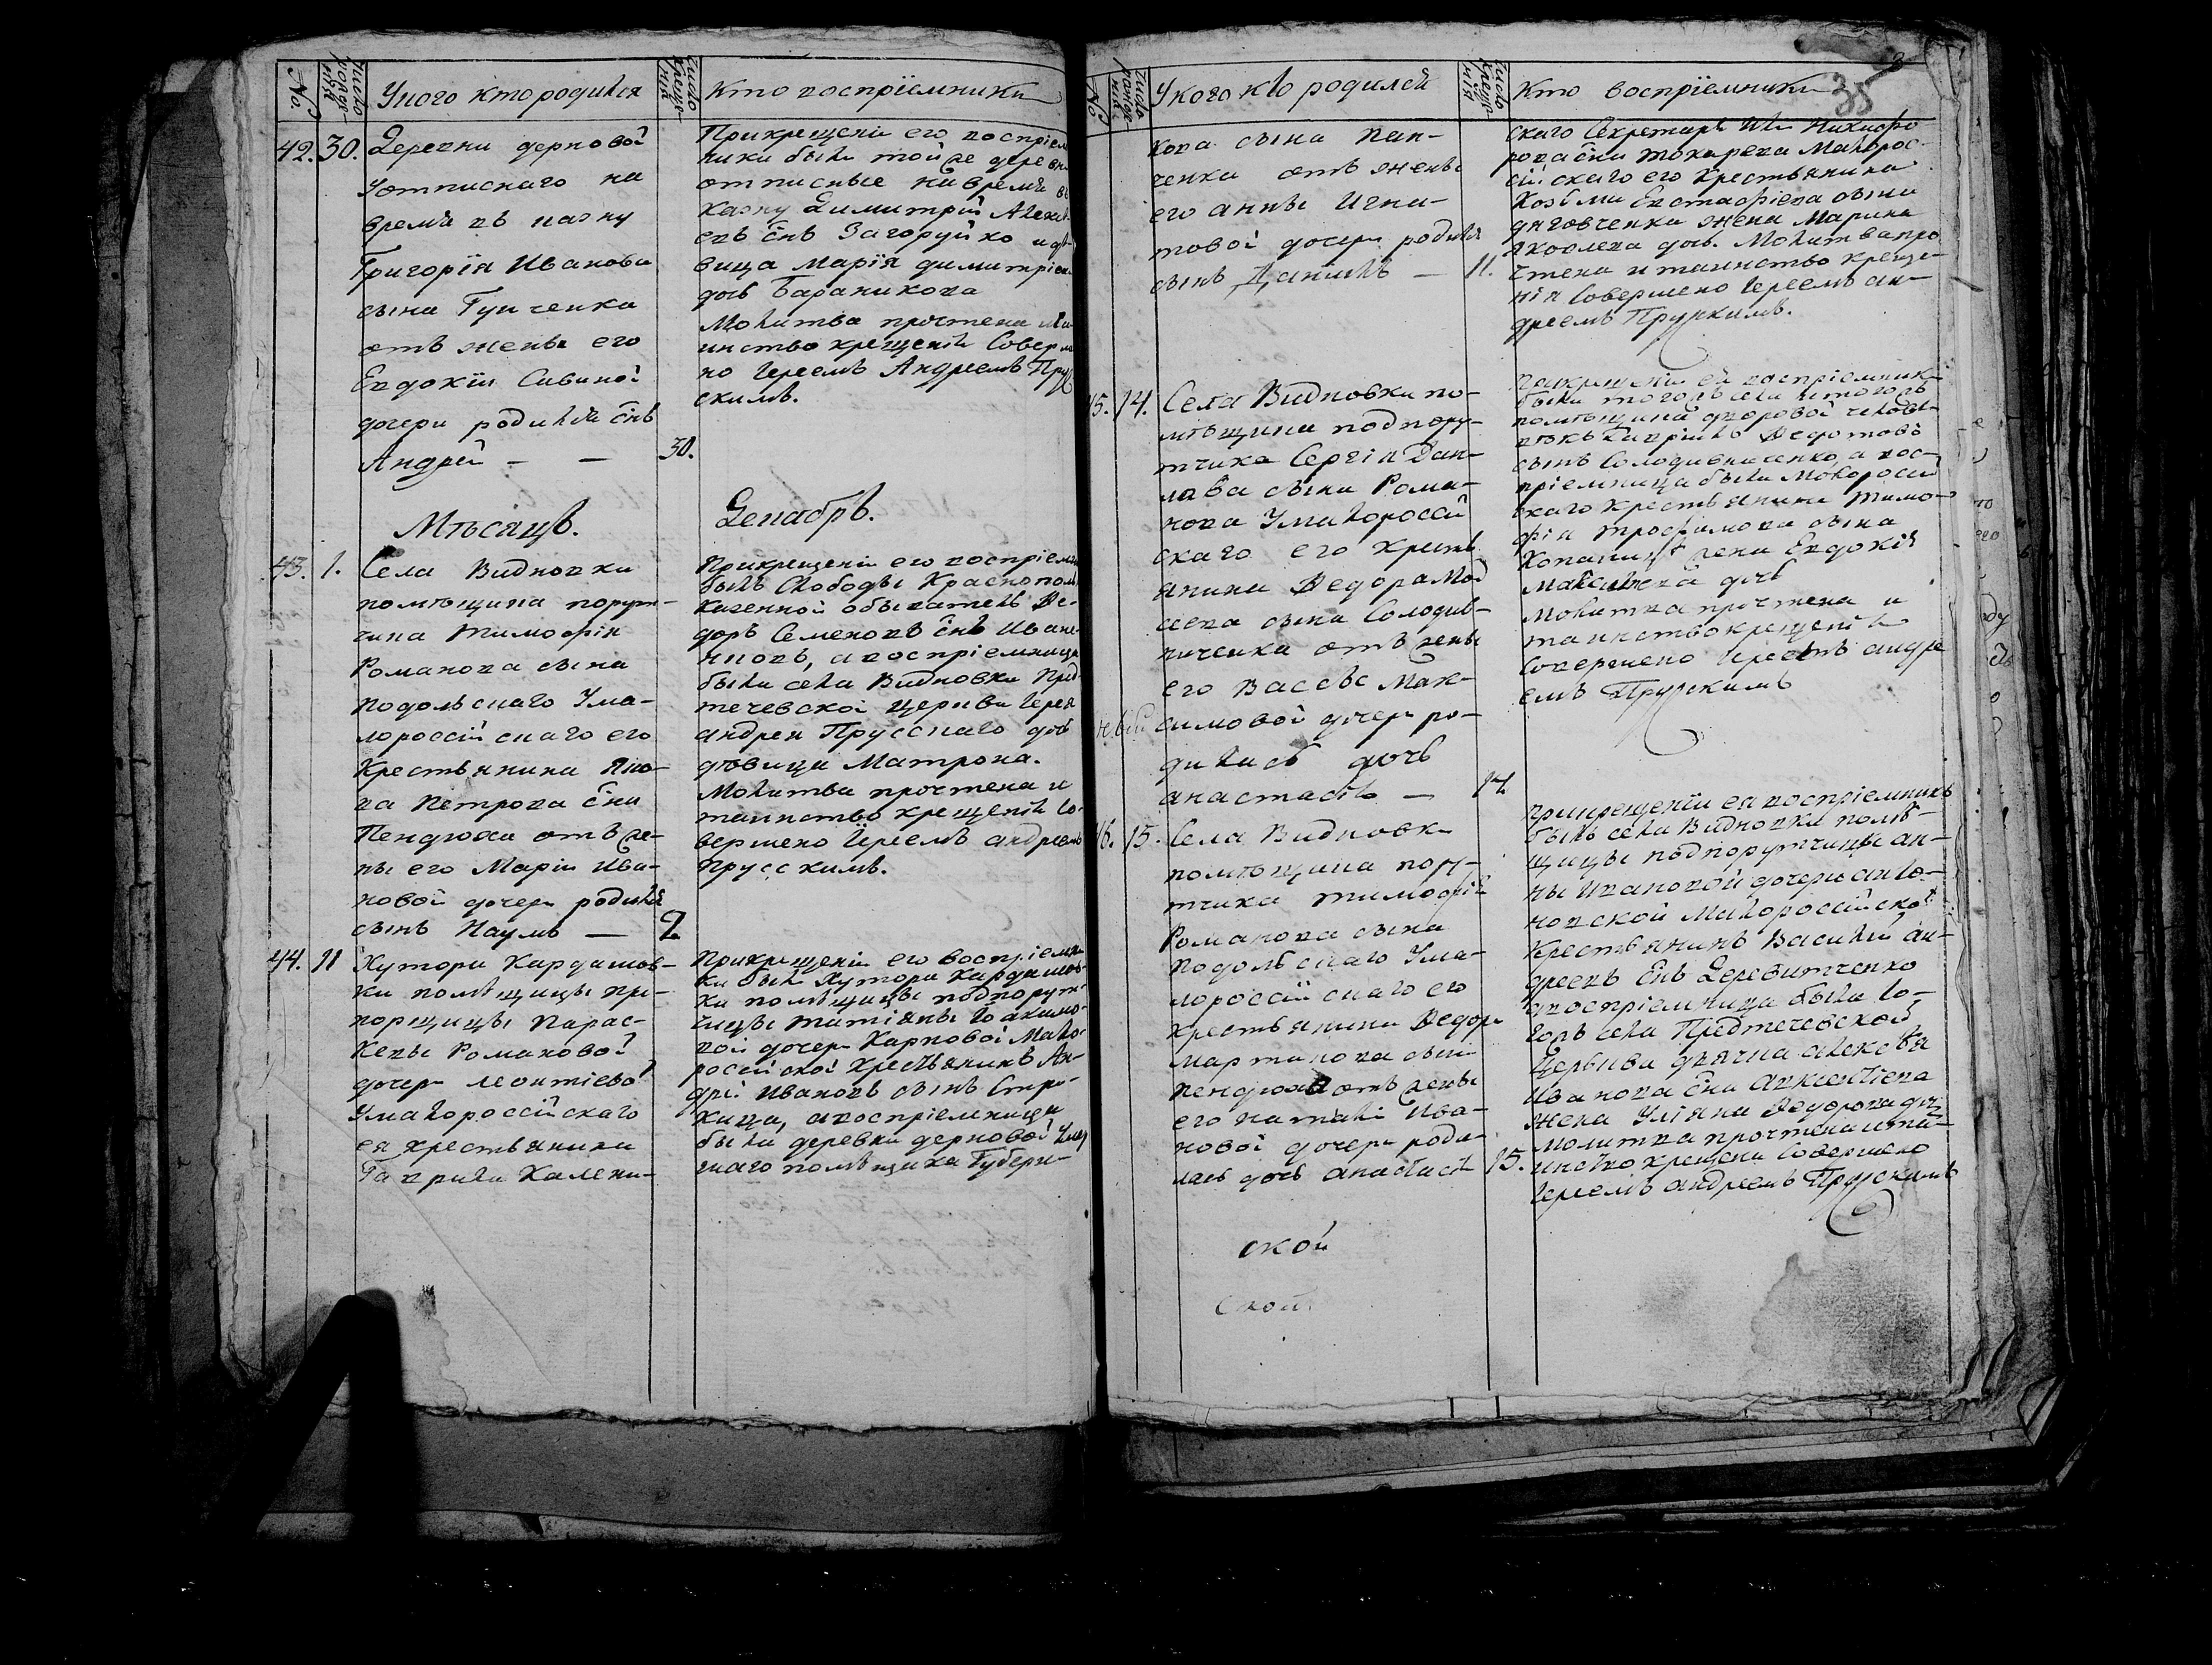 №
Число рожде-
нія
У кого кто родился
Число
креще-
нія
Кто воспріемники
42. 30.
Деревни дерновой
У отписнаго на
время въ казну
Григорія Иванова
сына Гупченка
отъ жены его
Евдокіи Савиной
дочери родился снъ
Андрей — — 30.
Прикрещеніи его воспріем
ники были той же деревни
отписные на время въ
казну Димитрій Алексѣ
евъ снъ Загоруйко и дѣ-
вица Марія димитріева
дочь Бараникова
Молитва прочтена и та
инство крещенія Соверше
но Іереемъ Андреемъ Пру
скимъ.
Мѣсяцъ.
Декабрь.
43. 1.
Села Видновки
помѣщика порут-
чика Тимофѣя
Романова сына
Подольскаго У ма-
лороссійскаго его
Крестьянина Яко-
ва Петрова сна
Пендюха отъ же-
ны его Маріи Ива-
новой дочери родился
сынъ Наумъ — 2
Прикрещеніи его воспріемни
былъ Слободы Краснополья
казенной обыватель Фе-
доръ Семеновъ снъ Иване-
нковъ, а воспріемница
была села Видновки Пред-
течевской церкви Іерея
андрея Прусскаго дочь
дѣвица Матрона.
Молитва прочтена и
таинство крещенія со-
вершено Іереемъ андреемъ
Прусскимъ.
44. 11
Хутора Кардашов-
ки помѣщицы пра-
порщицы Парас-
кевы Романовой
дочери леонтіевой
У малороссійскаго
ея крестьянина
Гаврила Калени-
Прикрещеніи его воспріемни
ки были Хутора Кардашов-
ки помѣщицы подпорут-
чицы татіяны Іоакимо-
вой дочери Карповой Мало-
россійской крестьянинъ Ан-
дрей Ивановъ сынъ Стро-
кица, а воспріемница
была деревни дерновой
наго помѣщика Губерн-
№
Число
рожде-
нія
У кого кто родился
Число
креще-
нія
Кто воспріемники
35
кова сына Пан-
ченка отъ жены
его анны Игна-
товой дочери родился
сынъ Даніилъ — 11.
скаго Секретаря Ивана Никифо
рова сна токарева Малорос-
сійскаго его Крестьянина
Козьмы Евстафіева сына
дяговченка жена Марина
Яковлева дочь. Молитва про
чтена и таинство креще-
нія Совершено Іереемъ ан-
дреемъ Прускимъ.
45. 14.
Села Видновки по-
мѣщика подпору-
тчика Сергія Дан-
лова сына Рома-
нова У малороссій
скаго его крестъ
янина Федора Мой
сеева сына Солодив-
ниченка отъ жены
его Вассы Мак-
симовой дочери ро-
дилась дочь
анастасія — 14
Прикрещеніи ея воспріемники
были тогожъ села и тогожъ
помѣщика дворовой человѣ-
къ Гавріилъ Федотовъ
сынъ Солодивниченко, а вос-
пріемница была Малоросій
скаго крестьянина Тимо-
фѣя трофимова сына
жена Евдокія
Максимова дочь
Молитва прочтена и
таинство крещенія
Совершено Іереемъ андре
емъ Прускимъ
46. 15.
Села Видновки
помѣщика пору-
тчика тимофѣя
Романова сына
Подольскаго У ма-
лороссійскаго его
крестьянина Федора
мартинова сына
пендюха отъ жены
его наталіи Ива-
новой дочери роди-
лась дочь анастасія 15.
Прикрещеніи ея воспріемникъ
былъ села Видновки помѣ-
щицы подпорутчицы ан-
ны Ивановой дочери анто-
новской Малороссійской
Крестьянинъ Василій ан-
дреевъ снъ Деревитченко
а воспріемница была то-
гожъ села Предтечевской
Церкви дьячка алексѣя
Иванова сна арксентіева
жена Уліяна Федорова дочь
молитва прочтена и та-
инство крещенія Совершено
Іереемъ андреемъ Прускимъ
ской
ской